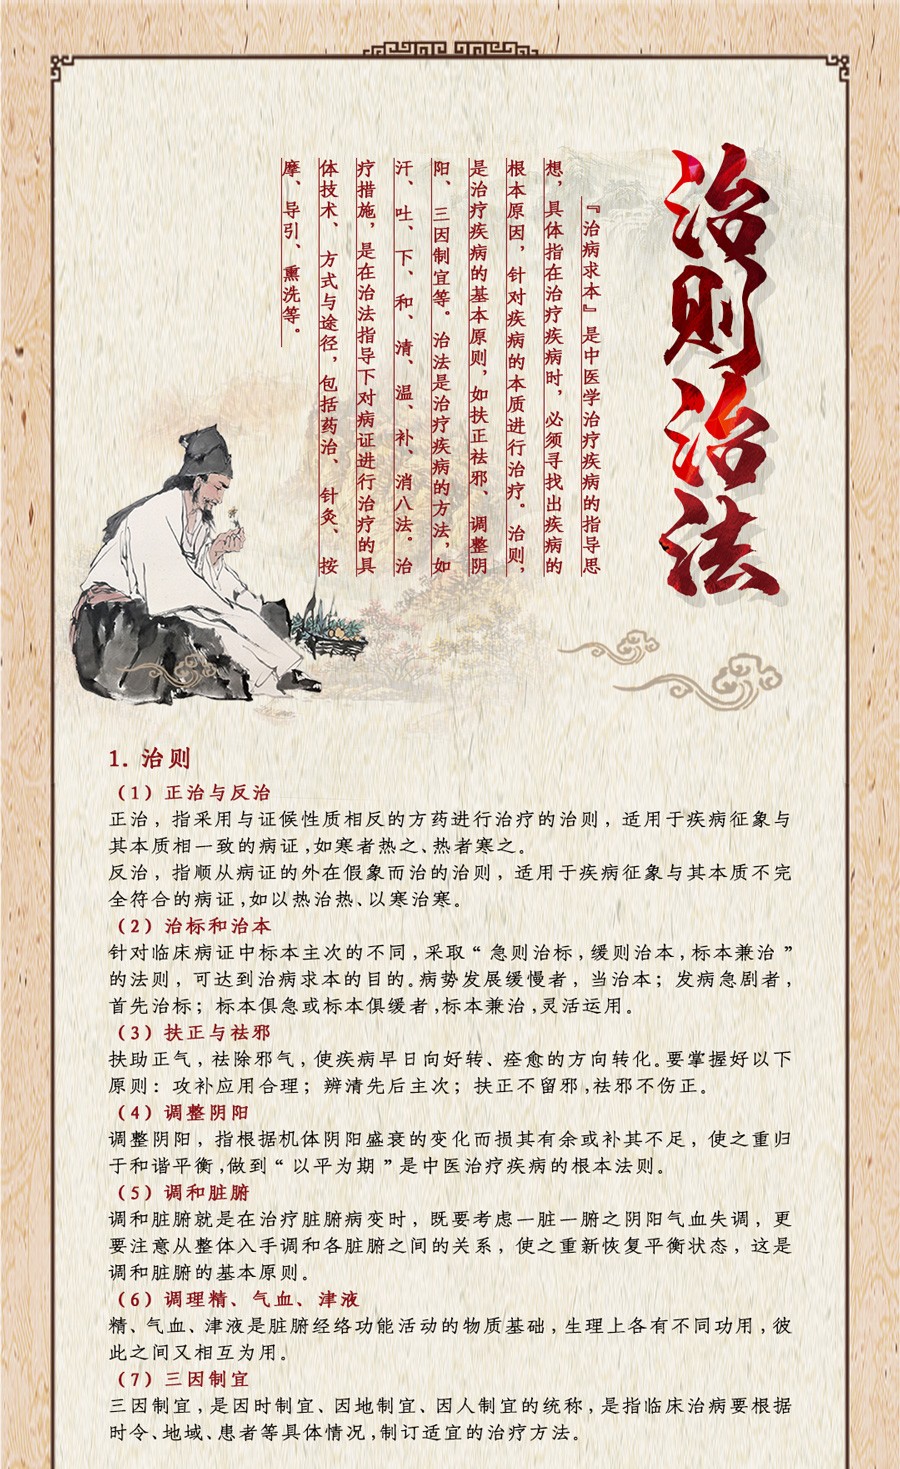 治则治法
『治病求本』是中医学治疗疾病的指导思
想，具体指在治疗疾病时，必须寻找出疾病的
根本原因，针对疾病的本质进行治疗。治则，
是治疗疾病的基本原则，如扶正祛邪、调整阴
阳、三因制宜等。治法是治疗疾病的方法，如
汗、吐、下、和、清、温、补、消八法。治
疗措施，是在治法指导下对病证进行治疗的具
体技术、方式与途径，包括药治、针灸、按
摩、导引、熏洗等。
1. 治则
（1）正治与反治
正治，指采用与证候性质相反的方药进行治疗的治则，适用于疾病征象与
其本质相一致的病证,如寒者热之、热者寒之。
反治，指顺从病证的外在假象而治的治则，适用于疾病征象与其本质不完
全符合的病证,如以热治热、以寒治寒。
（2）治标和治本
针对临床病证中标本主次的不同,采取“急则治标,缓则治本,标本兼治”
的法则，可达到治病求本的目的。病势发展缓慢者，当治本；发病急剧者，
首先治标；标本俱急或标本俱缓者,标本兼治,灵活运用。
（3）扶正与祛邪
扶助正气，祛除邪气，使疾病早日向好转、痊愈的方向转化。要掌握好以下
原则：攻补应用合理；辨清先后主次；扶正不留邪,祛邪不伤正。
（4）调整阴阳
调整阴阳，指根据机体阴阳盛衰的变化而损其有余或补其不足，使之重归
于和谐平衡,做到“以平为期”是中医治疗疾病的根本法则。
（5）调和脏腑
调和脏腑就是在治疗脏腑病变时，既要考虑一脏一腑之阴阳气血失调，更
要注意从整体入手调和各脏腑之间的关系，使之重新恢复平衡状态，这是
调和脏腑的基本原则。
（6）调理精、气血、津液
精、气血、津液是脏腑经络功能活动的物质基础,生理上各有不同功用,彼
此之间又相互为用。
（7）三因制宜
三因制宜,是因时制宜、因地制宜、因人制宜的统称,是指临床治病要根据
时令、地域、患者等具体情况,制订适宜的治疗方法。